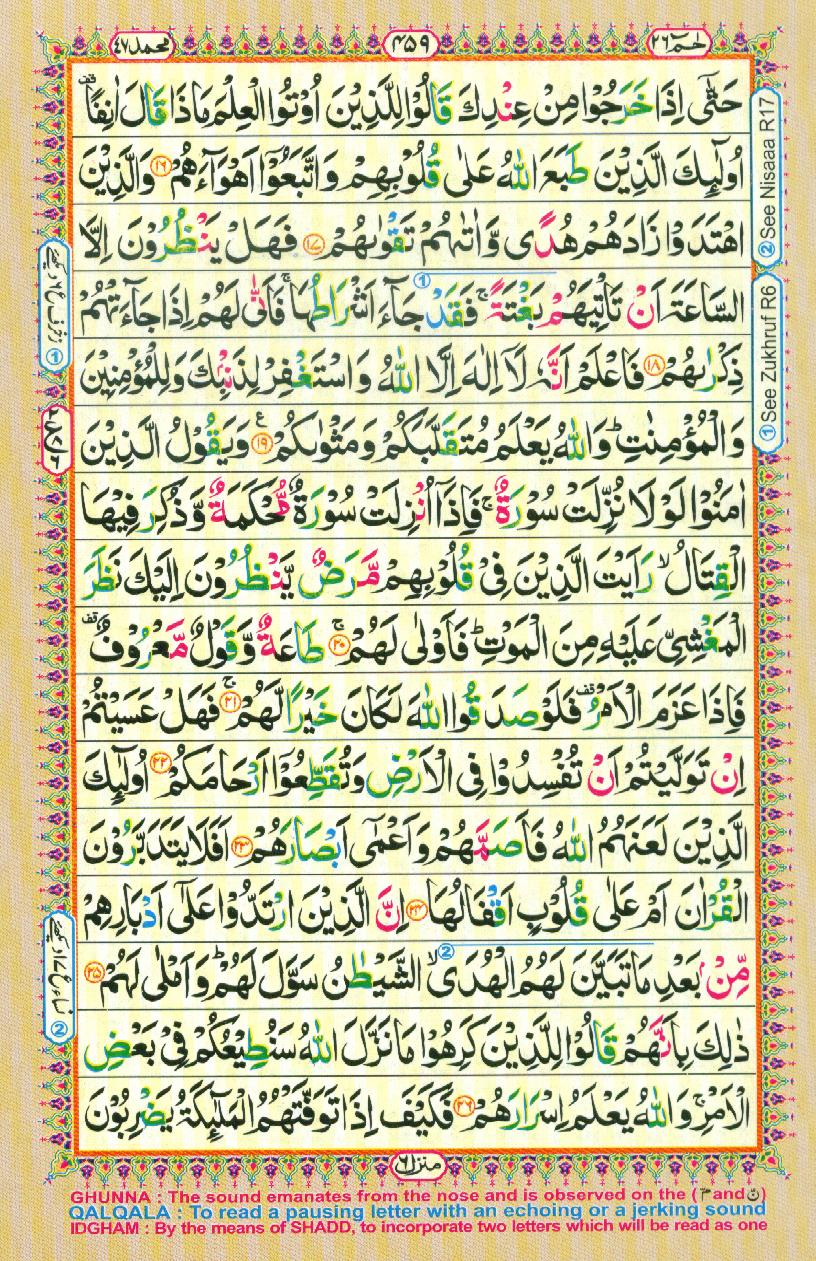 محمد ٤٧
٤٥٩
حٰمٓ ٢٦
حَتّٰۤى اِذَا خَرَجُوْا مِنْ عِنْدِكَ قَالُوْا لِلَّذِيْنَ اُوْتُوا الْعِلْمَ مَاذَا قَالَ اٰنِفًاۗ
اُولٰٓئِكَ الَّذِيْنَ طَبَعَ اللّٰهُ عَلٰى قُلُوْبِهِمْ وَاتَّبَعُوْۤا اَهْوَآءَهُمْ ﴿١٦﴾ وَالَّذِيْنَ
اهْتَدَوْا زَادَهُمْ هُدًى وَّاٰتٰٮهُمْ تَقْوٰٮهُمْ ﴿١٧﴾ فَهَلْ يَنْظُرُوْنَ اِلَّا
السَّاعَةَ اَنْ تَاْتِيَهُمْ بَغْتَةً ۚ فَقَدْ جَآءَ اَشْرَاطُهَا ۚ فَاَنّٰى لَهُمْ اِذَا جَآءَتْهُمْ
ذِكْرٰٮهُمْ ﴿١٨﴾ فَاعْلَمْ اَنَّهٗ لَاۤ اِلٰهَ اِلَّا اللّٰهُ وَاسْتَغْفِرْ لِذَنْۢبِكَ وَلِلْمُؤْمِنِيْنَ
وَالْمُؤْمِنٰتِ ؕ وَاللّٰهُ يَعْلَمُ مُتَقَلَّبَكُمْ وَمَثْوٰٮكُمْ ﴿١٩﴾ وَيَقُوْلُ الَّذِيْنَ
اٰمَنُوْا لَوْلَا نُزِّلَتْ سُوْرَةٌ ۚ فَاِذَاۤ اُنْزِلَتْ سُوْرَةٌ مُّحْكَمَةٌ وَّذُكِرَ فِيْهَا
الْقِتَالُ ۙ رَاَيْتَ الَّذِيْنَ فِيْ قُلُوْبِهِمْ مَّرَضٌ يَّنْظُرُوْنَ اِلَيْكَ نَظَرَ
الْمَغْشِيِّ عَلَيْهِ مِنَ الْمَوْتِ ؕ فَاَوْلٰى لَهُمْ ﴿٢٠﴾ طَاعَةٌ وَّقَوْلٌ مَّعْرُوْفٌ ۗ
فَاِذَا عَزَمَ الْاَمْرُ ۗ فَلَوْ صَدَقُوا اللّٰهَ لَكَانَ خَيْرًا لَّهُمْ ﴿٢١﴾ فَهَلْ عَسَيْتُمْ
اِنْ تَوَلَّيْتُمْ اَنْ تُفْسِدُوْا فِي الْاَرْضِ وَتُقَطِّعُوْۤا اَرْحَامَكُمْ ﴿٢٢﴾ اُولٰٓئِكَ
الَّذِيْنَ لَعَنَهُمُ اللّٰهُ فَاَصَمَّهُمْ وَاَعْمٰۤى اَبْصَارَهُمْ ﴿٢٣﴾ اَفَلَا يَتَدَبَّرُوْنَ
الْقُرْاٰنَ اَمْ عَلٰى قُلُوْبٍ اَقْفَالُهَا ﴿٢٤﴾ اِنَّ الَّذِيْنَ ارْتَدُّوْا عَلٰۤى اَدْبَارِهِمْ
مِّنْۢ بَعْدِ مَا تَبَيَّنَ لَهُمُ الْهُدَى ۙ الشَّيْطٰنُ سَوَّلَ لَهُمْ ؕ وَاَمْلٰى لَهُمْ ﴿٢٥﴾
ذٰلِكَ بِاَنَّهُمْ قَالُوْا لِلَّذِيْنَ كَرِهُوْا مَا نَزَّلَ اللّٰهُ سَنُطِيْعُكُمْ فِيْ بَعْضِ
الْاَمْرِ ۚ وَاللّٰهُ يَعْلَمُ اِسْرَارَهُمْ ﴿٢٦﴾ فَكَيْفَ اِذَا تَوَفَّتْهُمُ الْمَلٰٓئِكَةُ يَضْرِبُوْنَ
② See Nisaaa R17
① See Zukhruf R6
منزل ٦
GHUNNA : The sound emanates from the nose and is observed on the (مّ and نّ)
QALQALA : To read a pausing letter with an echoing or a jerking sound
IDGHAM : By the means of SHADD, to incorporate two letters which will be read as one